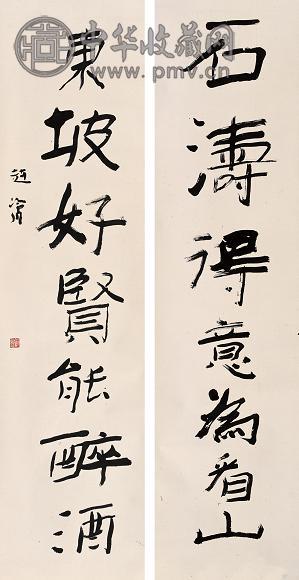 石濤得意為看山
東坡好賢能醉酒
趙冷月
中华收藏网
www.pmv.cn